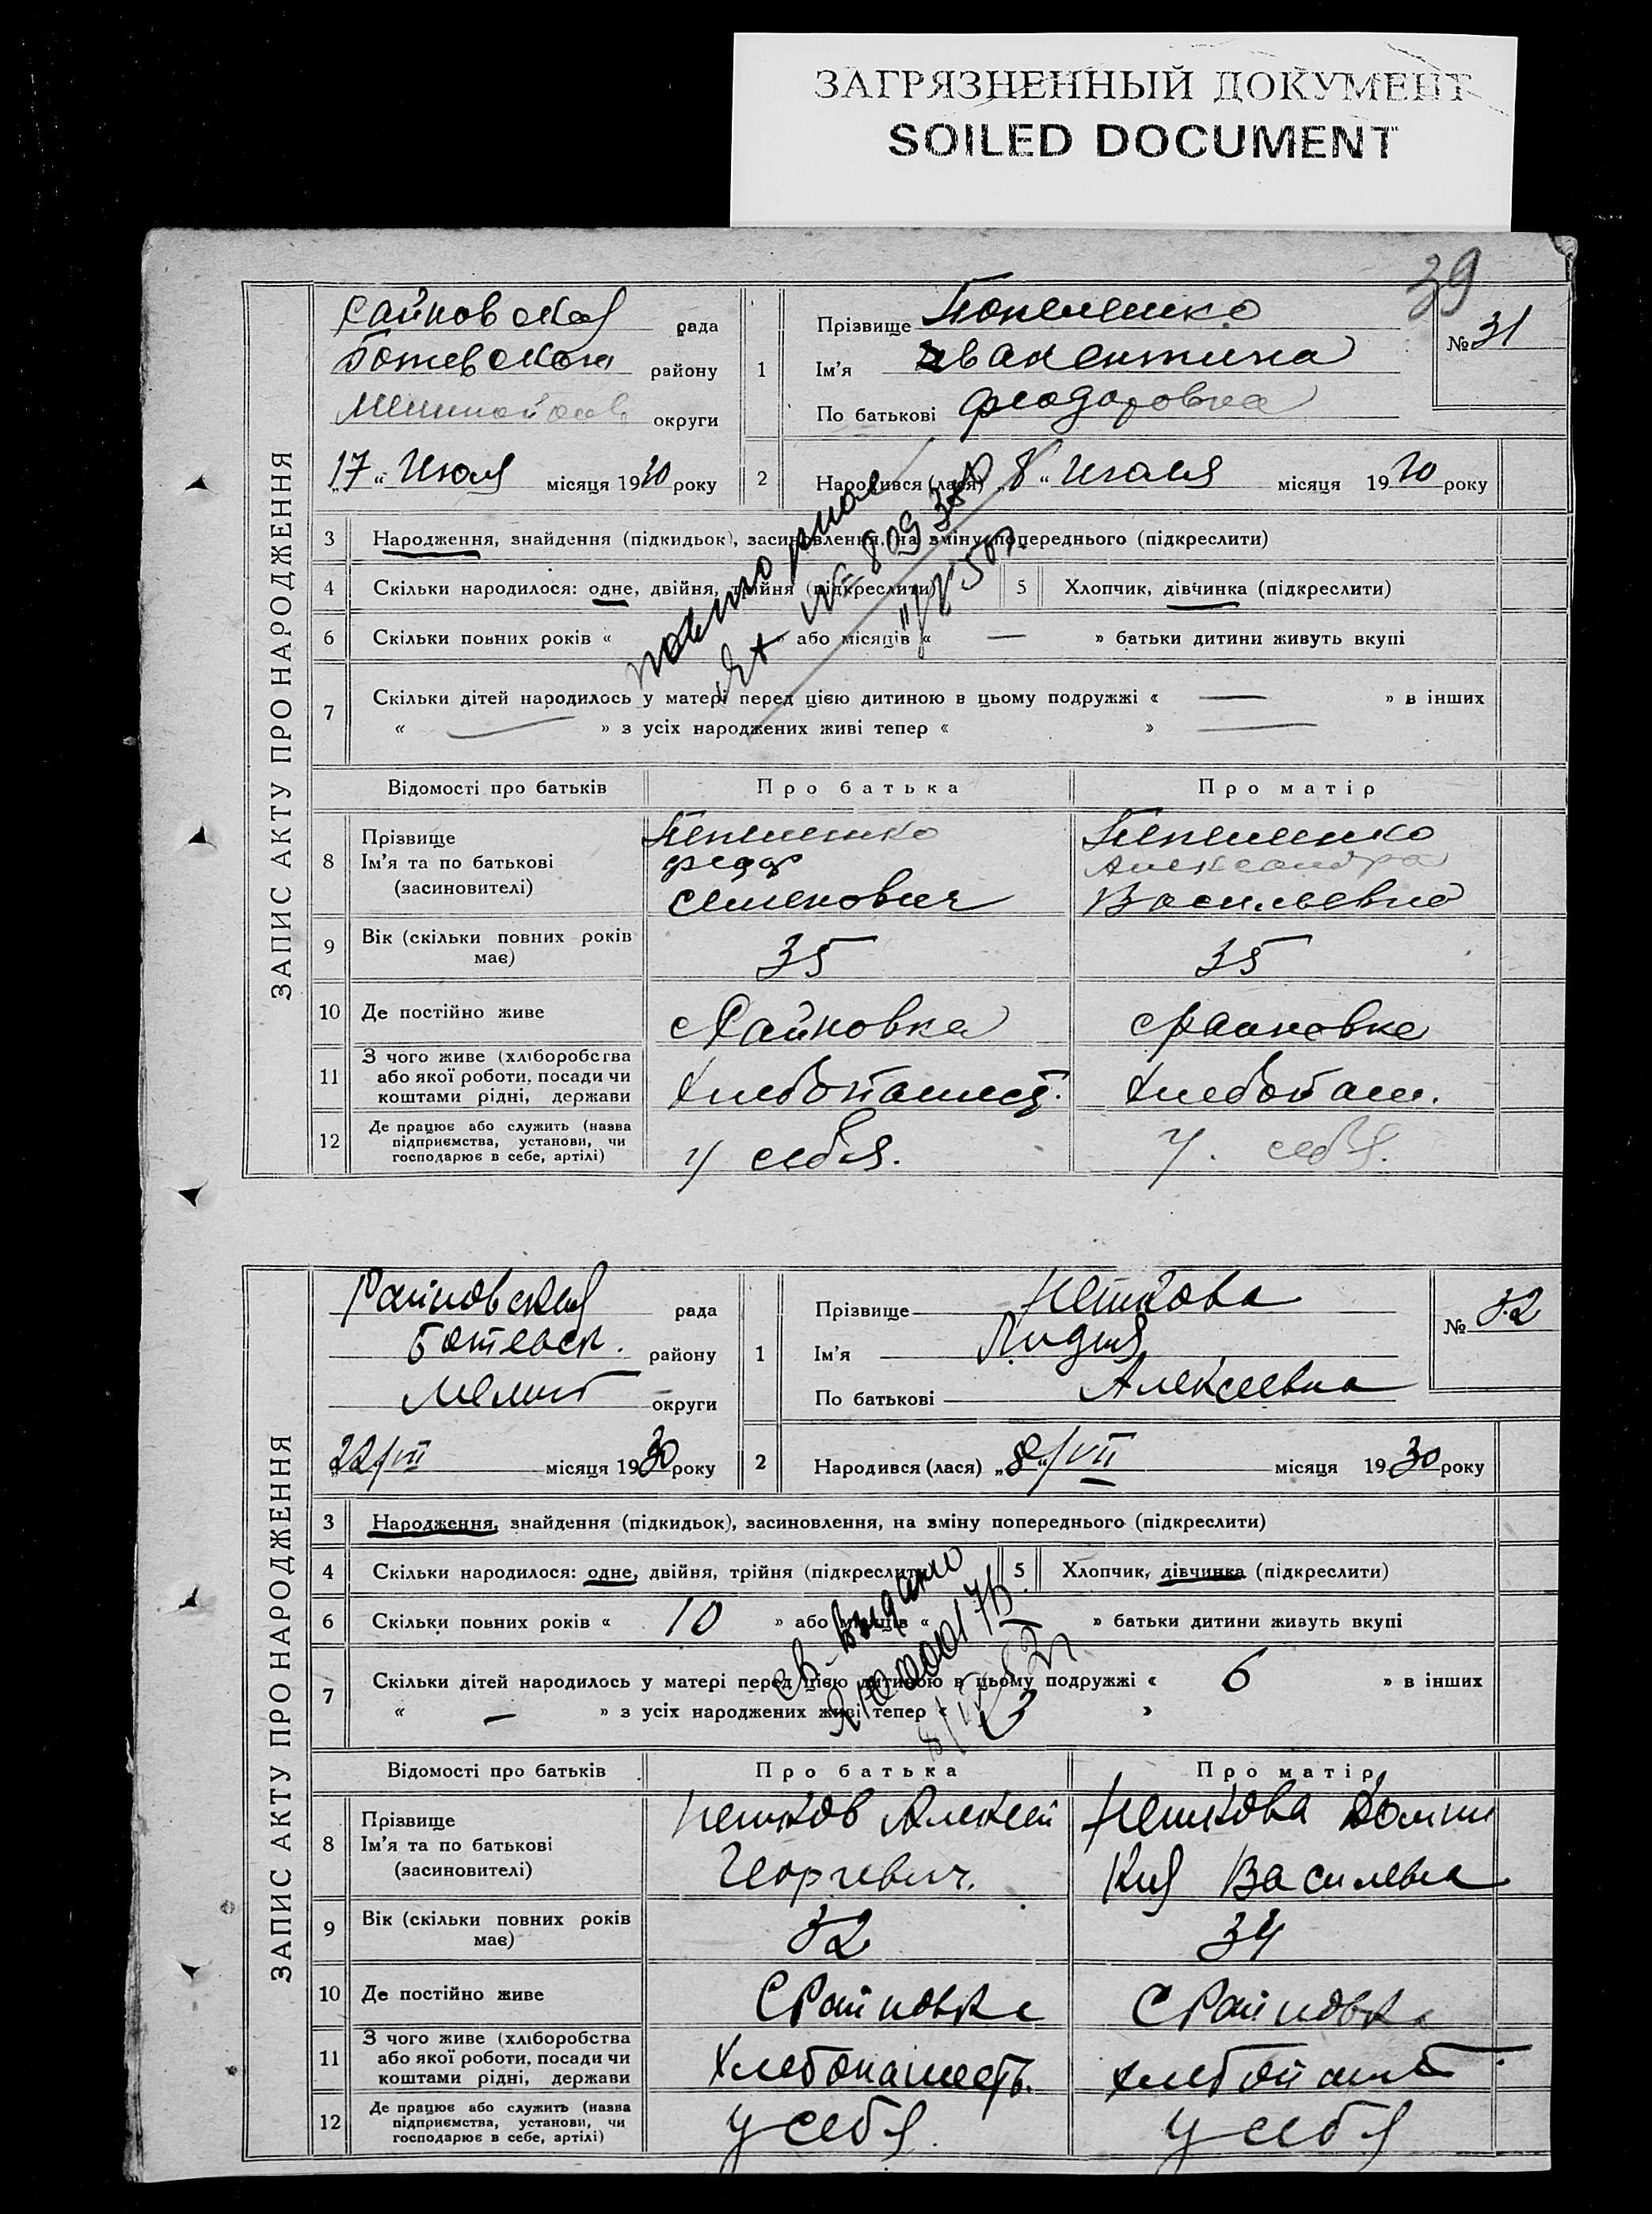 ЗАГРЯЗНЕННЫЙ ДОКУМЕНТ
SOILED DOCUMENT
39
ЗАПИС АКТУ ПРО НАРОДЖЕННЯ
Райновская рада
Ботевского району
округи
„17“ Июля місяця 1930 року
№ 31
1 Прізвище
Ім'я Валентина
По батькові Феодоровна
2 Народився (лася) „8“ Июля місяця 1930 року
3 Народження, знайдення (підкидьок), засиновлення, на зміну попереднього (підкреслити)
4 Скільки народилося: одне, двійня, трійня (підкреслити) 5 Хлопчик, дівчинка (підкреслити)
6 Скільки повних років « » або місяців « — » батьки дитини живуть вкупі
7 Скільки дітей народилось у матері перед цією дитиною в цьому подружжі « — » в інших
« — » з усіх народжених живі тепер « » —
повторное
Відомості про батьків Про батька Про матір
8 Прізвище
Ім'я та по батькові Александра
(засиновителі) Семенович Васильевна
9 Вік (скільки повних років має) 35 35
10 Де постійно живе с Райновка с Райновка
11 З чого живе (хліборобства або якої роботи, посади чи коштами рідні, держави Хлебопашест. Хлебопаш.
12 Де працює або служить (назва підприємства, установи, чи господарює в себе, артілі) у себя. у себя.
ЗАПИС АКТУ ПРО НАРОДЖЕННЯ
Райновская рада
Ботевск. району
Мелит округи
22/VII місяця 1930 року
№ 32
1 Прізвище Нешкова
Ім'я Лидия
По батькові Алексеевна
2 Народився (лася) „8“/VII місяця 1930 року
3 Народження, знайдення (підкидьок), засиновлення, на зміну попереднього (підкреслити)
4 Скільки народилося: одне, двійня, трійня (підкреслити) 5 Хлопчик, дівчинка (підкреслити)
6 Скільки повних років « 10 » або місяців « » батьки дитини живуть вкупі
7 Скільки дітей народилось у матері перед цією дитиною в цьому подружжі « 6 » в інших
« — » з усіх народжених живі тепер « 3 »
св-во выдано
Відомості про батьків Про батька Про матір
8 Прізвище Нешков Алексей Нешкова Домни
Ім'я та по батькові Георгевич. кия Василевна
(засиновителі)
9 Вік (скільки повних років має) 32 34
10 Де постійно живе С Райновка С Райновка
11 З чого живе (хліборобства або якої роботи, посади чи коштами рідні, держави Хлебопашеств. хлебопашб
12 Де працює або служить (назва підприємства, установи, чи господарює в себе, артілі) у себя у себя